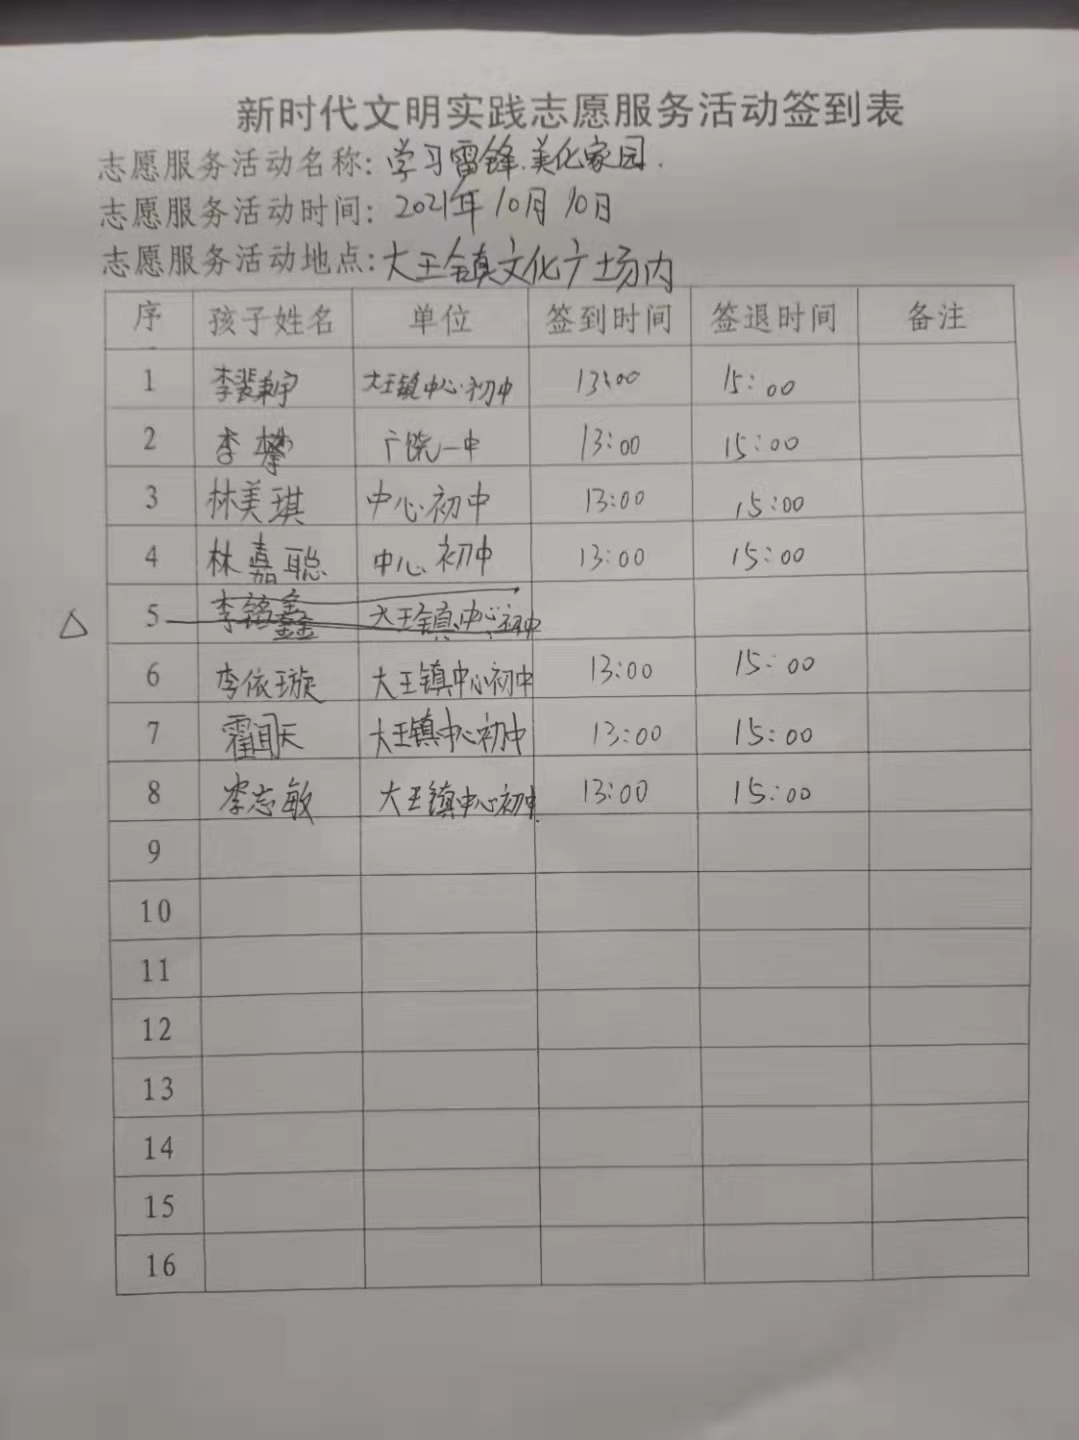 新时代文明实践志愿服务活动签到表
志愿服务活动名称：学习雷锋.美化家园.
志愿服务活动时间：2021年10月10日
志愿服务活动地点：大王镇文化广场内
序 孩子姓名 单位 签到时间 签退时间 备注
1 李裴宇 大王镇中心初中 13:00 15:00
2 李攀 广饶一中 13:00 15:00
3 林美琪 中心初中 13:00 15:00
4 林嘉聪 中心初中 13:00 15:00
△ 5 李铭鑫 大王镇中心初中
6 李依璇 大王镇中心初中 13:00 15:00
7 霍闻天 大王镇中心初中 13:00 15:00
8 李志敏 大王镇中心初中 13:00 15:00
9
10
11
12
13
14
15
16